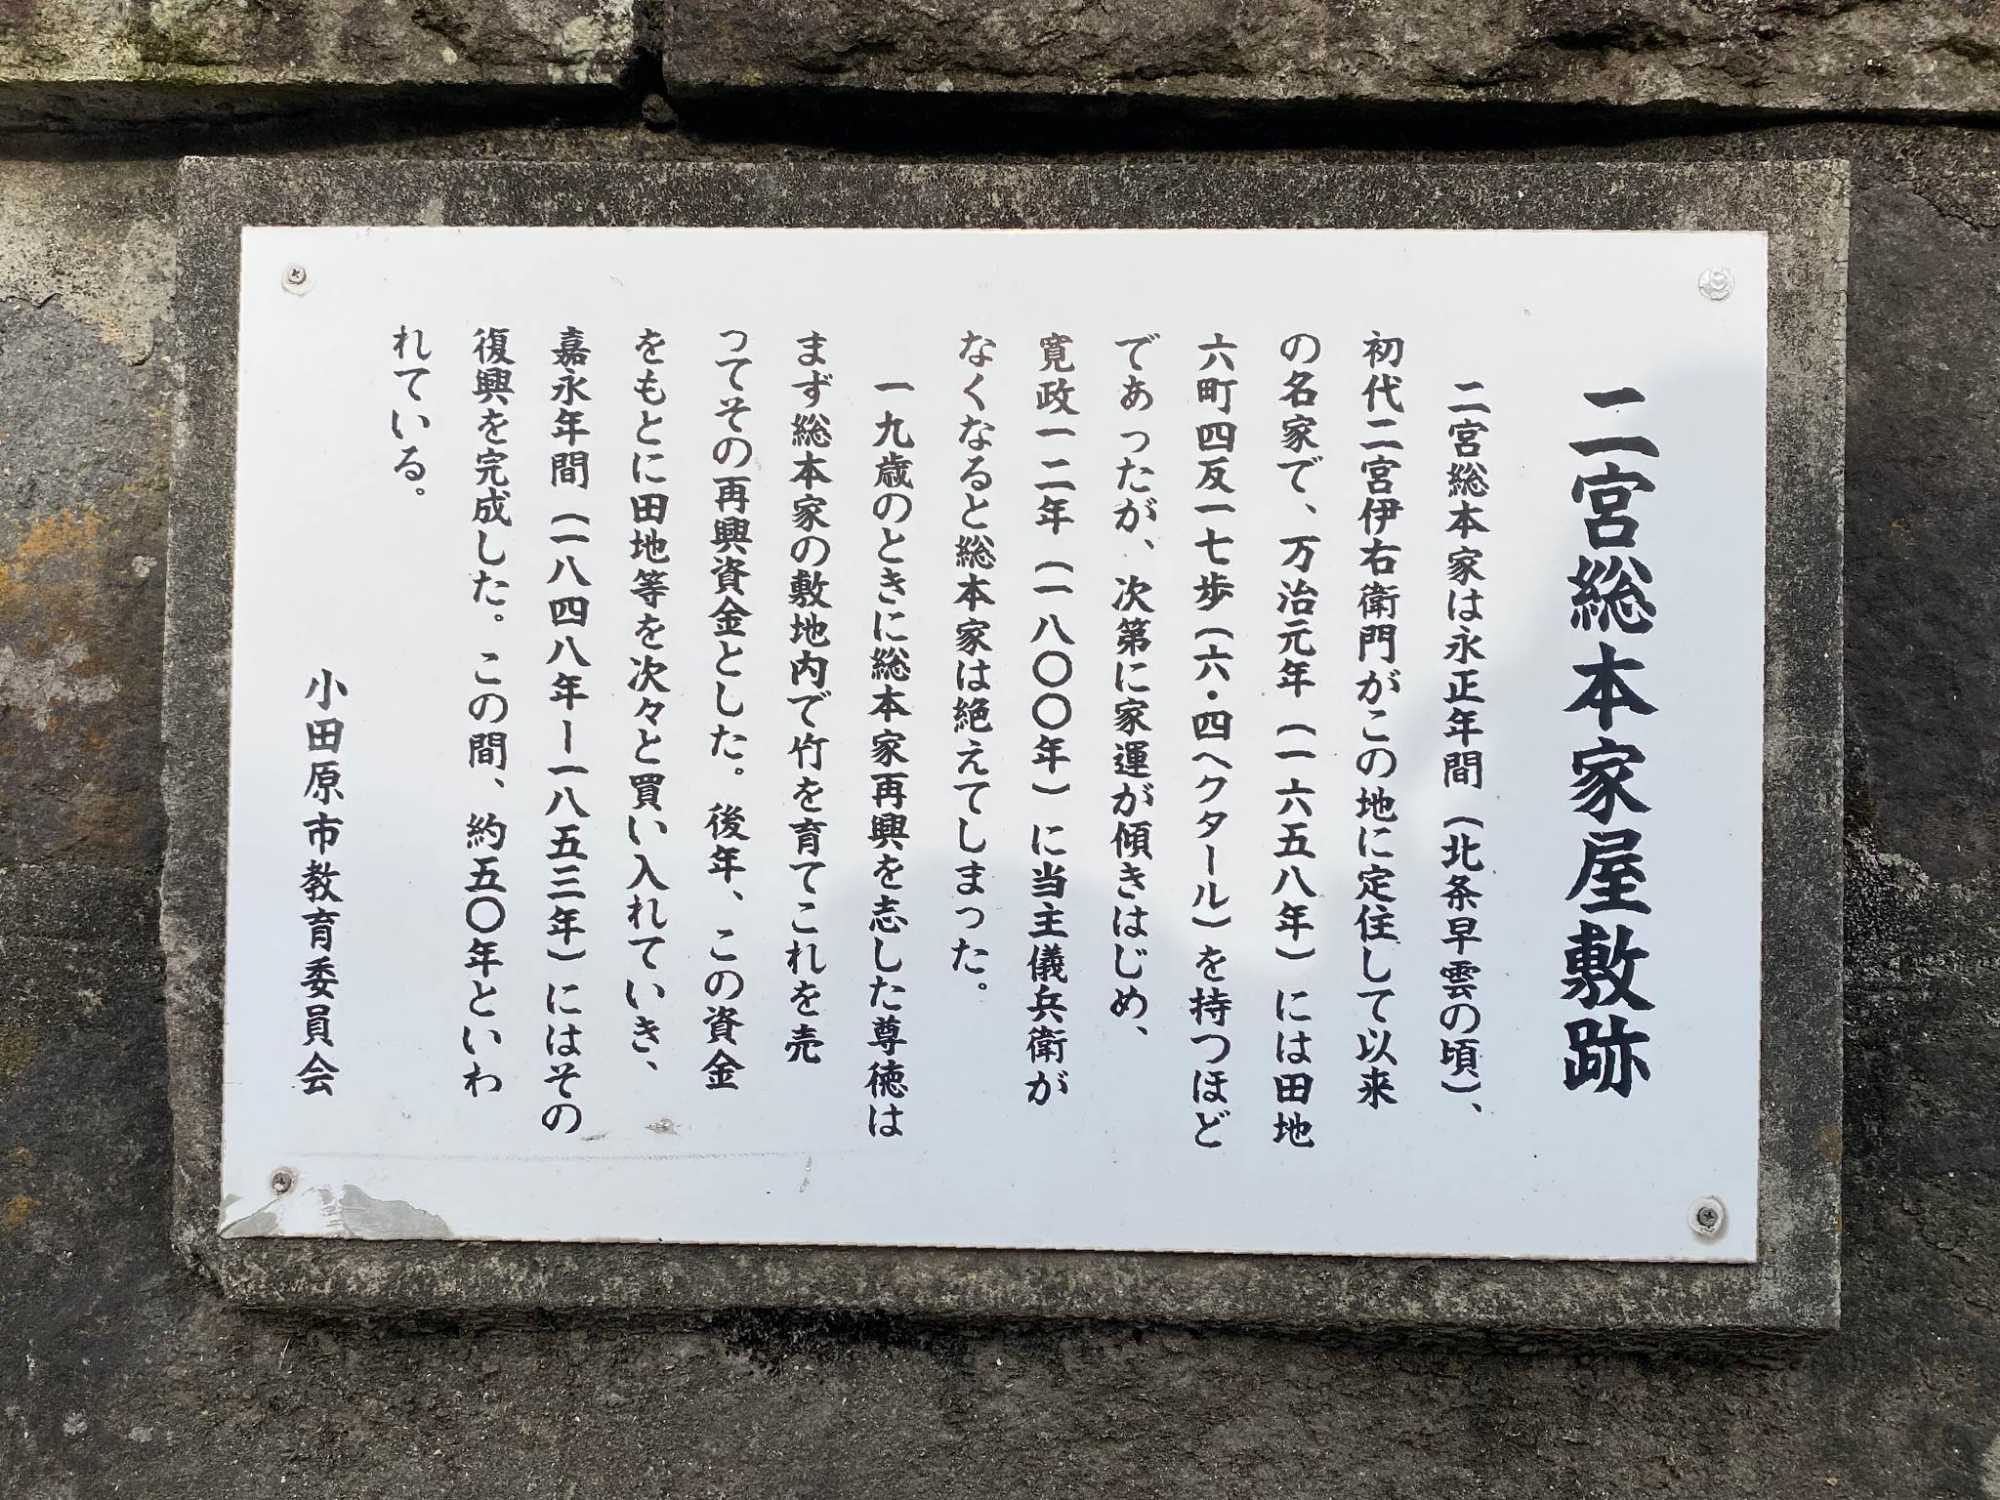 二宮総本家屋敷跡
二宮総本家は永正年間（北条早雲の頃）、
初代二宮伊右衛門がこの地に定住して以来
の名家で、万治元年（一六五八年）には田地
六町四反一七歩（六・四ヘクタール）を持つほど
であったが、次第に家運が傾きはじめ、
寛政一二年（一八〇〇年）に当主儀兵衛が
なくなると総本家は絶えてしまった。
一九歳のときに総本家再興を志した尊徳は
まず総本家の敷地内で竹を育てこれを売
ってその再興資金とした。後年、この資金
をもとに田地等を次々と買い入れていき、
嘉永年間（一八四八年ー一八五三年）にはその
復興を完成した。この間、約五〇年といわ
れている。
小田原市教育委員会